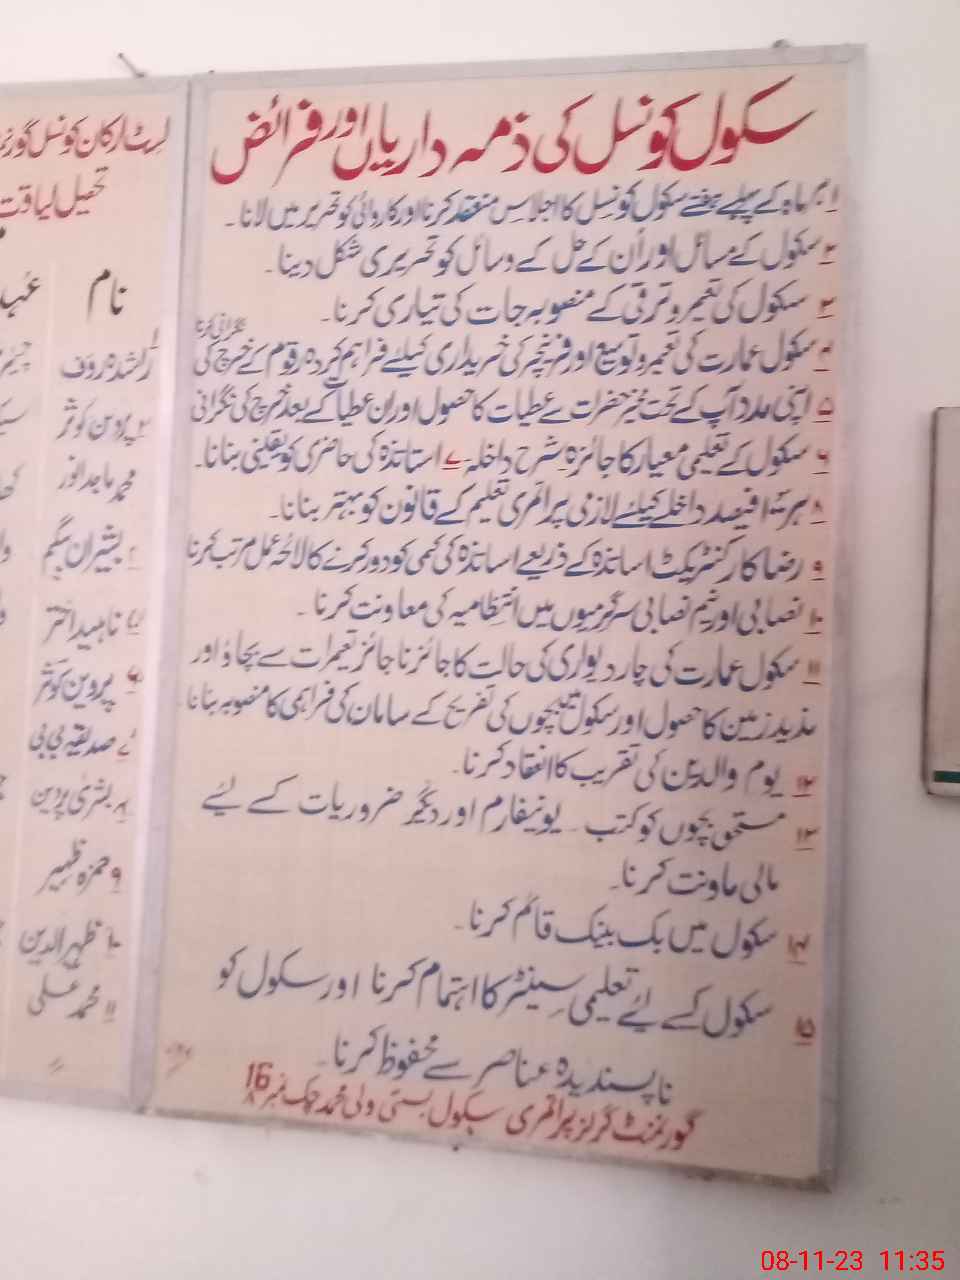 سکول کونسل کی ذمہ داریاں اور فرائض
۱ ہر ماہ کے پہلے ہفتے سکول کونسل کا اجلاس منعقد کرنا اور کاروائی کو تحریر میں لانا۔
۲ سکول کے مسائل اور اُن کے حل کے وسائل کو تحریری شکل دینا۔
۳ سکول کی تعمیر و ترقی کے منصوبہ جات کی تیاری کرنا۔
۴ سکول عمارت کی تعمیر و توسیع اور فرنیچر کی خریداری کیلئے فراہم کردہ رقوم کے خرچ کی نگرانی کرنا
۵ اپنی مدد آپ کے تحت مخیر حضرات سے عطیات کا حصول اور ان عطیات کے بعد خرچ کی نگرانی
۶ سکول کے تعلیمی معیار کا جائزہ شرح داخلہ ۷ استاتذہ کی حاضری کو یقینی بنانا۔
۸ ہر ۱۰۰ فیصد داخلے کیلئے لازمی پرائمری تعلیم کے قانون کو بہتر بنانا۔
۹ رضا کار کنٹریکٹ اساتذہ کے ذریعے اساتذہ کی کمی کو دور کرنے کا لائحہ عمل مرتب کرنا
۱۰ نصابی اور ہم نصابی سرگرمیوں میں انتظامیہ کی معاونت کرنا۔
۱۱ سکول عمارت کی چار دیواری کی حالت کا جائزنا جائز تعمیرات سے بچاؤ اور
مذید زمین کا حصول اور سکول میں بچوں کی تفریح کے سامان کی فراہمی کا منصوبہ بنانا
۱۲ یوم والدین کی تقریب کا انعقاد کرنا۔
۱۳ مستحق بچوں کو کتب ۔ یونیفارم اور دیگر ضروریات کے لئے
مالی ماونت کرنا۔
۱۴ سکول میں بک بینک قائم کرنا۔
۱۵ سکول کے لئے تعلیمی سینٹر کا اہتمام کرنا اور سکول کو
ناپسندیدہ عناصر سے محفوظ کرنا۔
گورنمنٹ گرلز پرائمری سکول بستی ولی محمد چک نمبر 16
لسٹ ارکان کونسل
تحصیل لیاقت
نام
۱ راشدہ روف
۲ پروین کوثر
محمد ماجد انور
۴ بشیراں بیگم
۵ ناہید اختر
۶ پروین کوثر
۷ صدیقہ بی بی
۸ بشریٰ پروین
۹ حمزہ ظہیر
۱۰ ظہیر الدین
۱۱ محمد علی
08-11-23 11:35